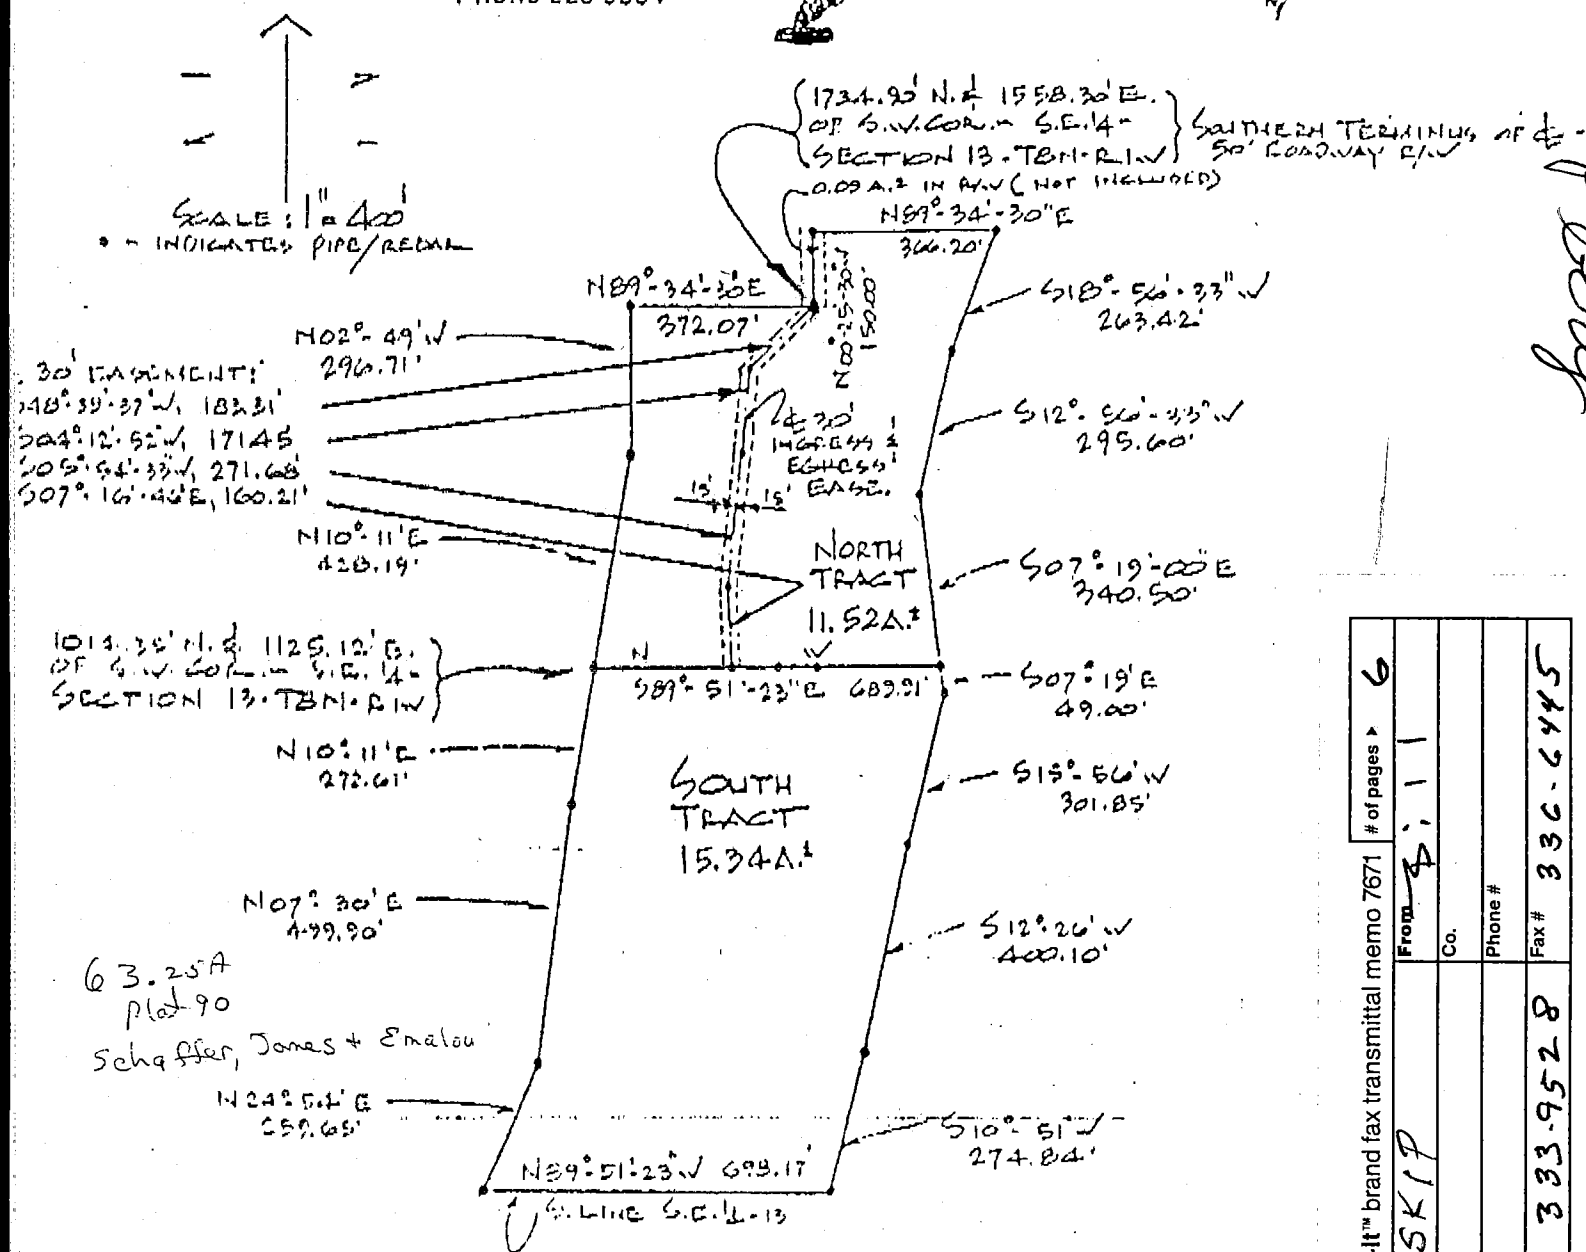 SCALE: 1" = 400'
• - INDICATES PIPE/REBAR
1734.90' N. & 1558.30' E.
OF S.W. COR. - S.E. 1/4 -
SECTION 13 - T8N - R1W
SOUTHERN TERMINUS OF ℄ -
50' ROADWAY R/W
0.09 A.± IN R/W (NOT INCLUDED)
N89°-34'-30"E
366.20'
N00°-25'-30"W
150.00'
N89°-34'-30"E
372.07'
S18°-56'-33"W
263.42'
N02°-49'W
296.71'
30' EASEMENT:
S48°-39'-37"W, 183.31'
S04°-12'-52"W, 171.45
S05°-54'-33"W, 271.68'
S07°-16'-46"E, 160.21'
S12°-56'-33"W
295.60'
℄ 30'
INGRESS &
EGRESS
EASE.
15' 15'
N10°-11'E
428.19'
NORTH
TRACT
11.52A.±
S07°-19'-00"E
340.50'
1014.35' N. & 1125.12' E.
OF S.W. COR. - S.E. 1/4 -
SECTION 13 - T8N - R1W
N W
S89°-51'-23"E 689.91'
S07°-19'E
49.00'
N10°-11'E
272.61'
SOUTH
TRACT
15.34A.±
S15°-56'W
301.85'
N07°-30'E
499.90'
S12°-26'W
400.10'
63.25A
Plat 90
Schaffer, James + Emalou
N24°-54'E
259.65'
S10°-51'W
274.84'
N89°-51'-23"W 698.17'
S. LINE S.E. 1/4 - 13
brand fax transmittal memo 7671 # of pages ▸ 6
SKIP
From
Co.
Phone #
333-9528
Fax # 336-6445